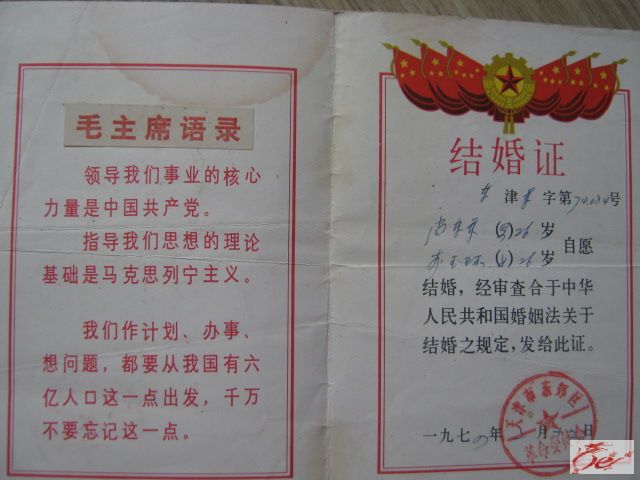 毛主席语录
领导我们事业的核心
力量是中国共产党。
指导我们思想的理论
基础是马克思列宁主义。
我们作计划、办事、
想问题，都要从我国有六
亿人口这一点出发，千万
不要忘记这一点。
结婚证
津 字第74034号
(男)26岁
(女)26岁
自愿
结婚，经审查合于中华
人民共和国婚姻法关于
结婚之规定，发给此证。
一九七四年 月 日
天津市东郊区